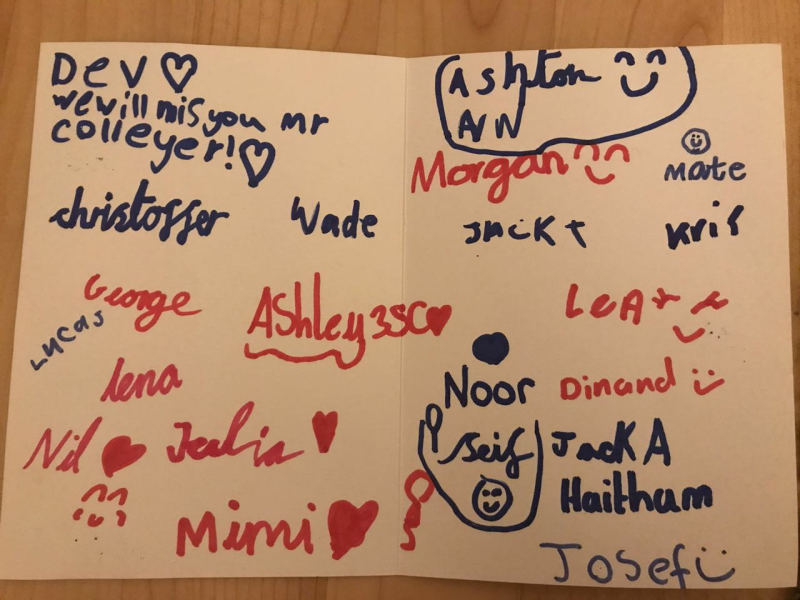 Dev
we will mis you mr
colleyer!
christoffer
Wade
George
Lucas
Ashley 3SC
lena
Nil
Julia
Mimi
Ashton
Morgan
Mate
Jack t
Kris
Noor
Dinand
Seif
Jack A
Haitham
Josef